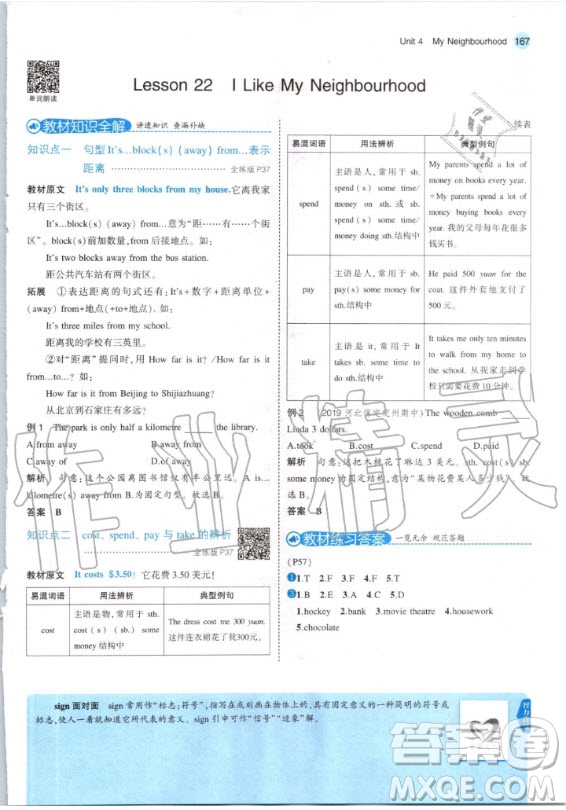 Unit 4 My Neighbourhood 167
单词朗读
Lesson 22 I Like My Neighbourhood
教材知识全解 讲透知识 查漏补缺
知识点一 句型It's...block(s) (away) from...表示
距离 全练版P37
教材原文 It's only three blocks from my house.它离我家
只有三个街区。
It's...block(s) (away) from...意为“距……有……个街
区”。block(s)前加数量,from后接地点。如:
It's two blocks away from the bus station.
距公共汽车站有两个街区。
拓展 ①表达距离的句式还有:It's+数字+距离单位+
(away) from+地点(+to+地点). 如:
It's three miles from my school.
距离我的学校有三英里。
②对“距离”提问时,用 How far is it? /How far is it
from...to...? 如:
How far is it from Beijing to Shijiazhuang?
从北京到石家庄有多远?
例1 The park is only half a kilometre the library.
A.from away B.away from
C.away of D.of away
解析 句意:这个公园离图书馆仅有半公里远。A is...
kilometre(s) away from B为固定结构,故选B。
答案 B
知识点二 cost、spend、pay与take的辨析
全练版P37
教材原文 It costs $3.50! 它花费3.50美元!
易混词语 用法辨析 典型例句
cost
主语是物,常用于 sth.
cost(s) (sb.) some
money结构中
The dress cost me 300 yuan.
这件连衣裙花了我300元。
续表
易混词语 用法辨析 典型例句
spend
主语是人,常用于 sb.
spend(s) some time/
money on sth.或 sb.
spend(s) some time/
money doing sth.结构中
My parents spend a lot of
money on books every year.
=My parents spend a lot of
money buying books every
year. 我的父母每年花很多
钱买书。
pay
主语是人,常用于 sb.
pay(s) some money for
sth.结构中
He paid 500 yuan for the
coat. 这件外套他支付了
500元。
take
主语是 it, 常用于 It
takes sb. some time to
do sth.结构中
It takes me only ten minutes
to walk from my home to
school. 从我家走到学校
只需要花费10分钟。
例2 (2019河北保定定州期中)The wooden comb
Linda 3 dollars.
A.took B.cost C.spend D.paid
解析 句意:这把木梳花了琳达3美元。sth. cost(s) sb.
some money为固定结构,意为“某物花费某人多少钱”。
故选B。
答案 B
教材练习答案 一览无余 规范答题
(P57)
1.T 2.F 3.F 4.F 5.T
1.B 2.E 3.A 4.C 5.D
1.hockey 2.bank 3.movie theatre 4.housework
5.chocolate
sign面对面 sign常用作“标志;符号”,指写在或刻画在物体上的,具有固定意义的一种简明的符号或
点,使人一看就知道它所代表的意义。sign引申可作“信号”“迹象”解。
作业精灵
答案圈
MXQE.COM